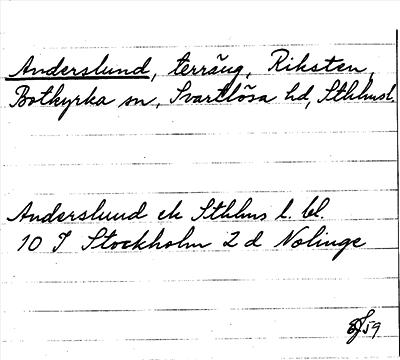 Anderslund, terräng, Riksten,
Botkyrka sn, Svartlösa hd, Sthlmsl.
Anderslund ek Sthlms l. bl.
10 I Stockholm 2 d Nolinge
59